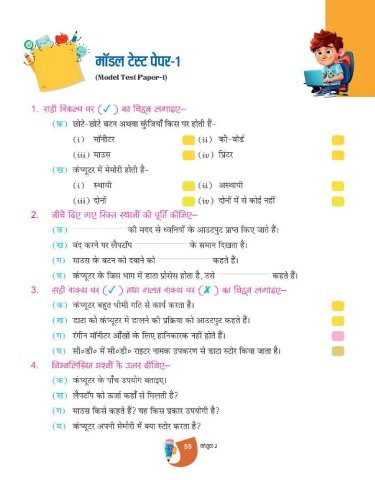 मॉडल टेस्ट पेपर-1
(Model Test Paper-1)
1. सही विकल्प पर (✓) का चिह्न लगाइए–
(क) छोटे-छोटे बटन अथवा कुंजियाँ किस पर होती हैं-
(i) मॉनीटर (ii) की-बोर्ड
(iii) माउस (iv) प्रिंटर
(ख) कंप्यूटर में मेमोरी होती है-
(i) स्थायी (ii) अस्थायी
(iii) दोनों (iv) दोनों में से कोई नहीं
2. नीचे दिए गए रिक्त स्थानों की पूर्ति कीजिए–
(क) की मदद से ध्वनियों के आउटपुट प्राप्त किए जाते हैं।
(ख) बंद करने पर लैपटॉप के समान दिखता है।
(ग) माउस के बटन को दबाने को कहते हैं।
(घ) कंप्यूटर के जिस भाग में डाटा प्रोसेस होता है, उसे कहते हैं।
3. सही वाक्य पर (✓) तथा गलत वाक्य पर (✗) का चिह्न लगाइए–
(क) कंप्यूटर बहुत धीमी गति से कार्य करता है।
(ख) डाटा को कंप्यूटर में डालने की प्रक्रिया को आउटपुट कहते हैं।
(ग) रंगीन मॉनीटर आँखों के लिए हानिकारक नहीं होते हैं।
(घ) सी०डी० में सी०डी० राइटर नामक उपकरण से डाटा स्टोर किया जाता है।
4. निम्नलिखित प्रश्नों के उत्तर दीजिए–
(क) कंप्यूटर के पाँच उपयोग बताइए।
(ख) लैपटॉप को ऊर्जा कहाँ से मिलती है?
(ग) माउस किसे कहते हैं? यह किस प्रकार उपयोगी है?
(घ) कंप्यूटर अपनी मेमोरी में क्या स्टोर करता है?
55 कंप्यूटर-2